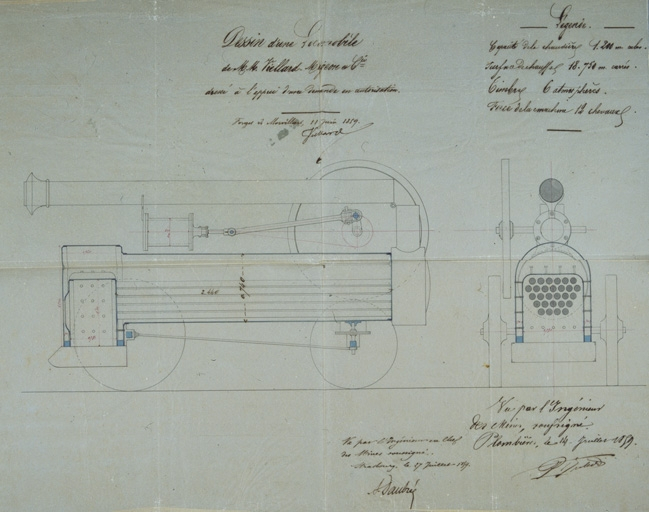 Dessin d'une Locomobile
de M.M. Viellard-Migeon & Cie
dressé à l'appui d'une demande en autorisation.
Forges de Morvillars, 11 Juin 1859.
Légende.
Capacité de la chaudière 1.200 m cubes.
Surface de chauffe 18,750 m carrés.
Timbre 6 atmosphères.
Force de la machine 12 chevaux
2.400
0.740
Vu par l'Ingénieur en Chef
des Mines soussigné.
le 27 Juillet 1859.
A Daubrée
Vu par l'Ingénieur
des Mines, soussigné.
Plombières, le 24 Juillet 1859.